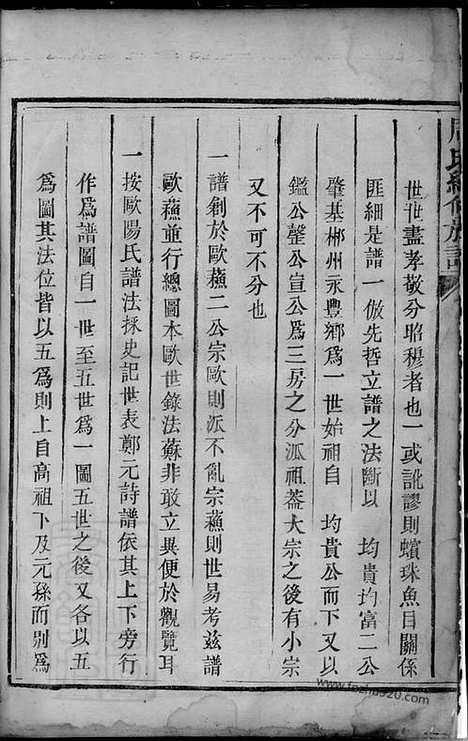 氏續修族譜
世世盡孝敬分昭穆者也一或訛謬則蠙珠魚目關係
匪細是譜一倣先哲立譜之法斷以 均貴均富二公
肇基郴州永豐鄉爲一世始祖自 均貴公而下又以
鑑公鏧公宣公爲三房之分派祖葢大宗之後有小宗
又不可不分也
一譜創於歐蘓二公宗歐則派不亂宗蘓則世易考兹譜
歐蘓並行總圖本歐世錄法蘇非敢立異便於觀覽耳
一按歐陽氏譜法採史記世表鄭元詩譜依其上下旁行
作爲譜圖自一世至五世爲一圖五世之後又各以五
爲圖其法位皆以五爲則上自高祖下及元孫而別爲
www.fozhu920.com